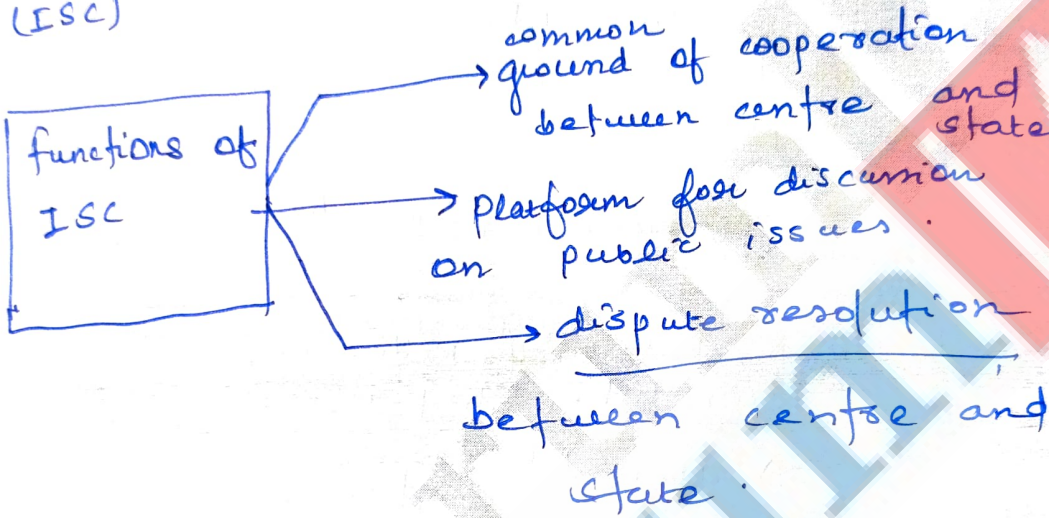 (ISC)
functions of
ISC
common
ground of cooperation
between centre and
state
platform for discussion
on public issues.
dispute resolution
between centre and
state.